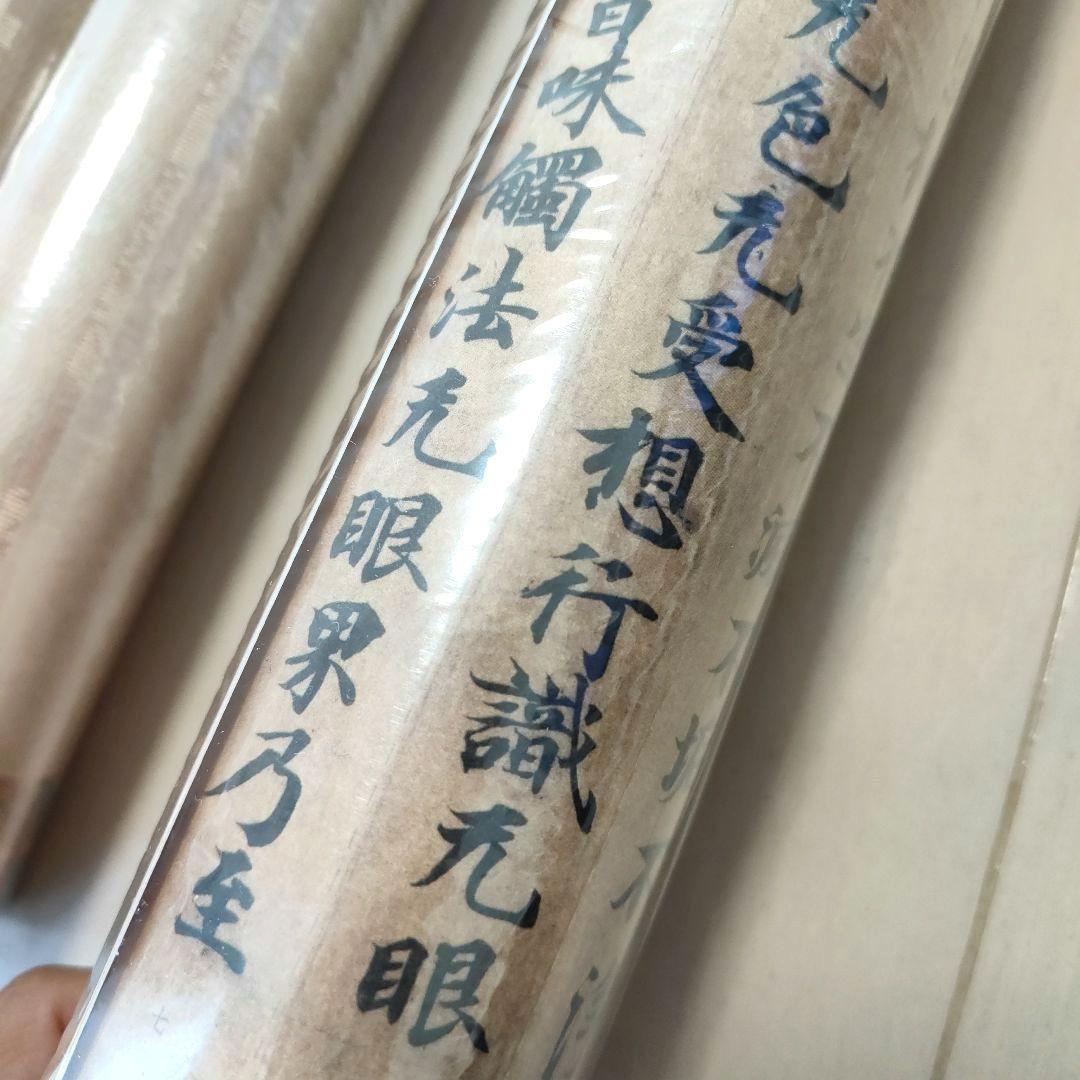 无色无受想行識无眼
香味觸法无眼界乃至
七